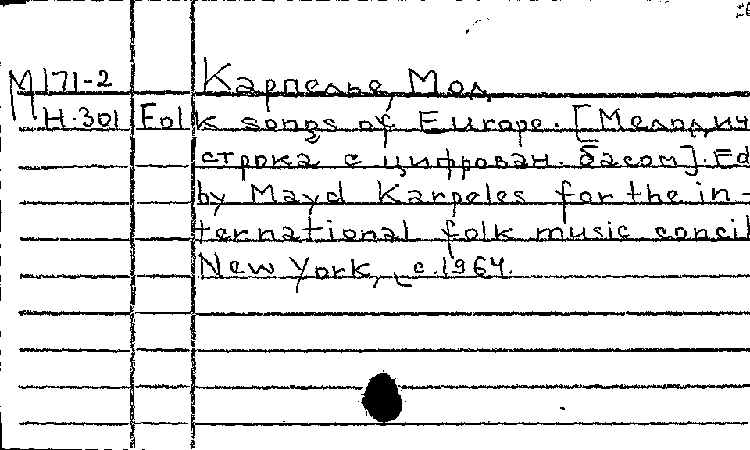 М171-2 Карпелье, Мод
Н-301 Folk songs of Europe. [Мелодич
строка с цифрован. басом]. Ed
by Mayd Karpeles for the in-
ternational folk music concil
New York, c.1964.